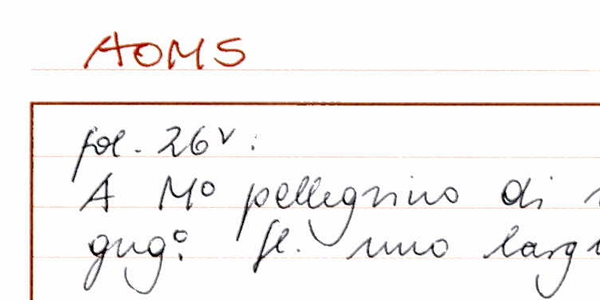 AOMS
fol. 26v:
A Mo pellegrino di
gugo: fl. uno largi